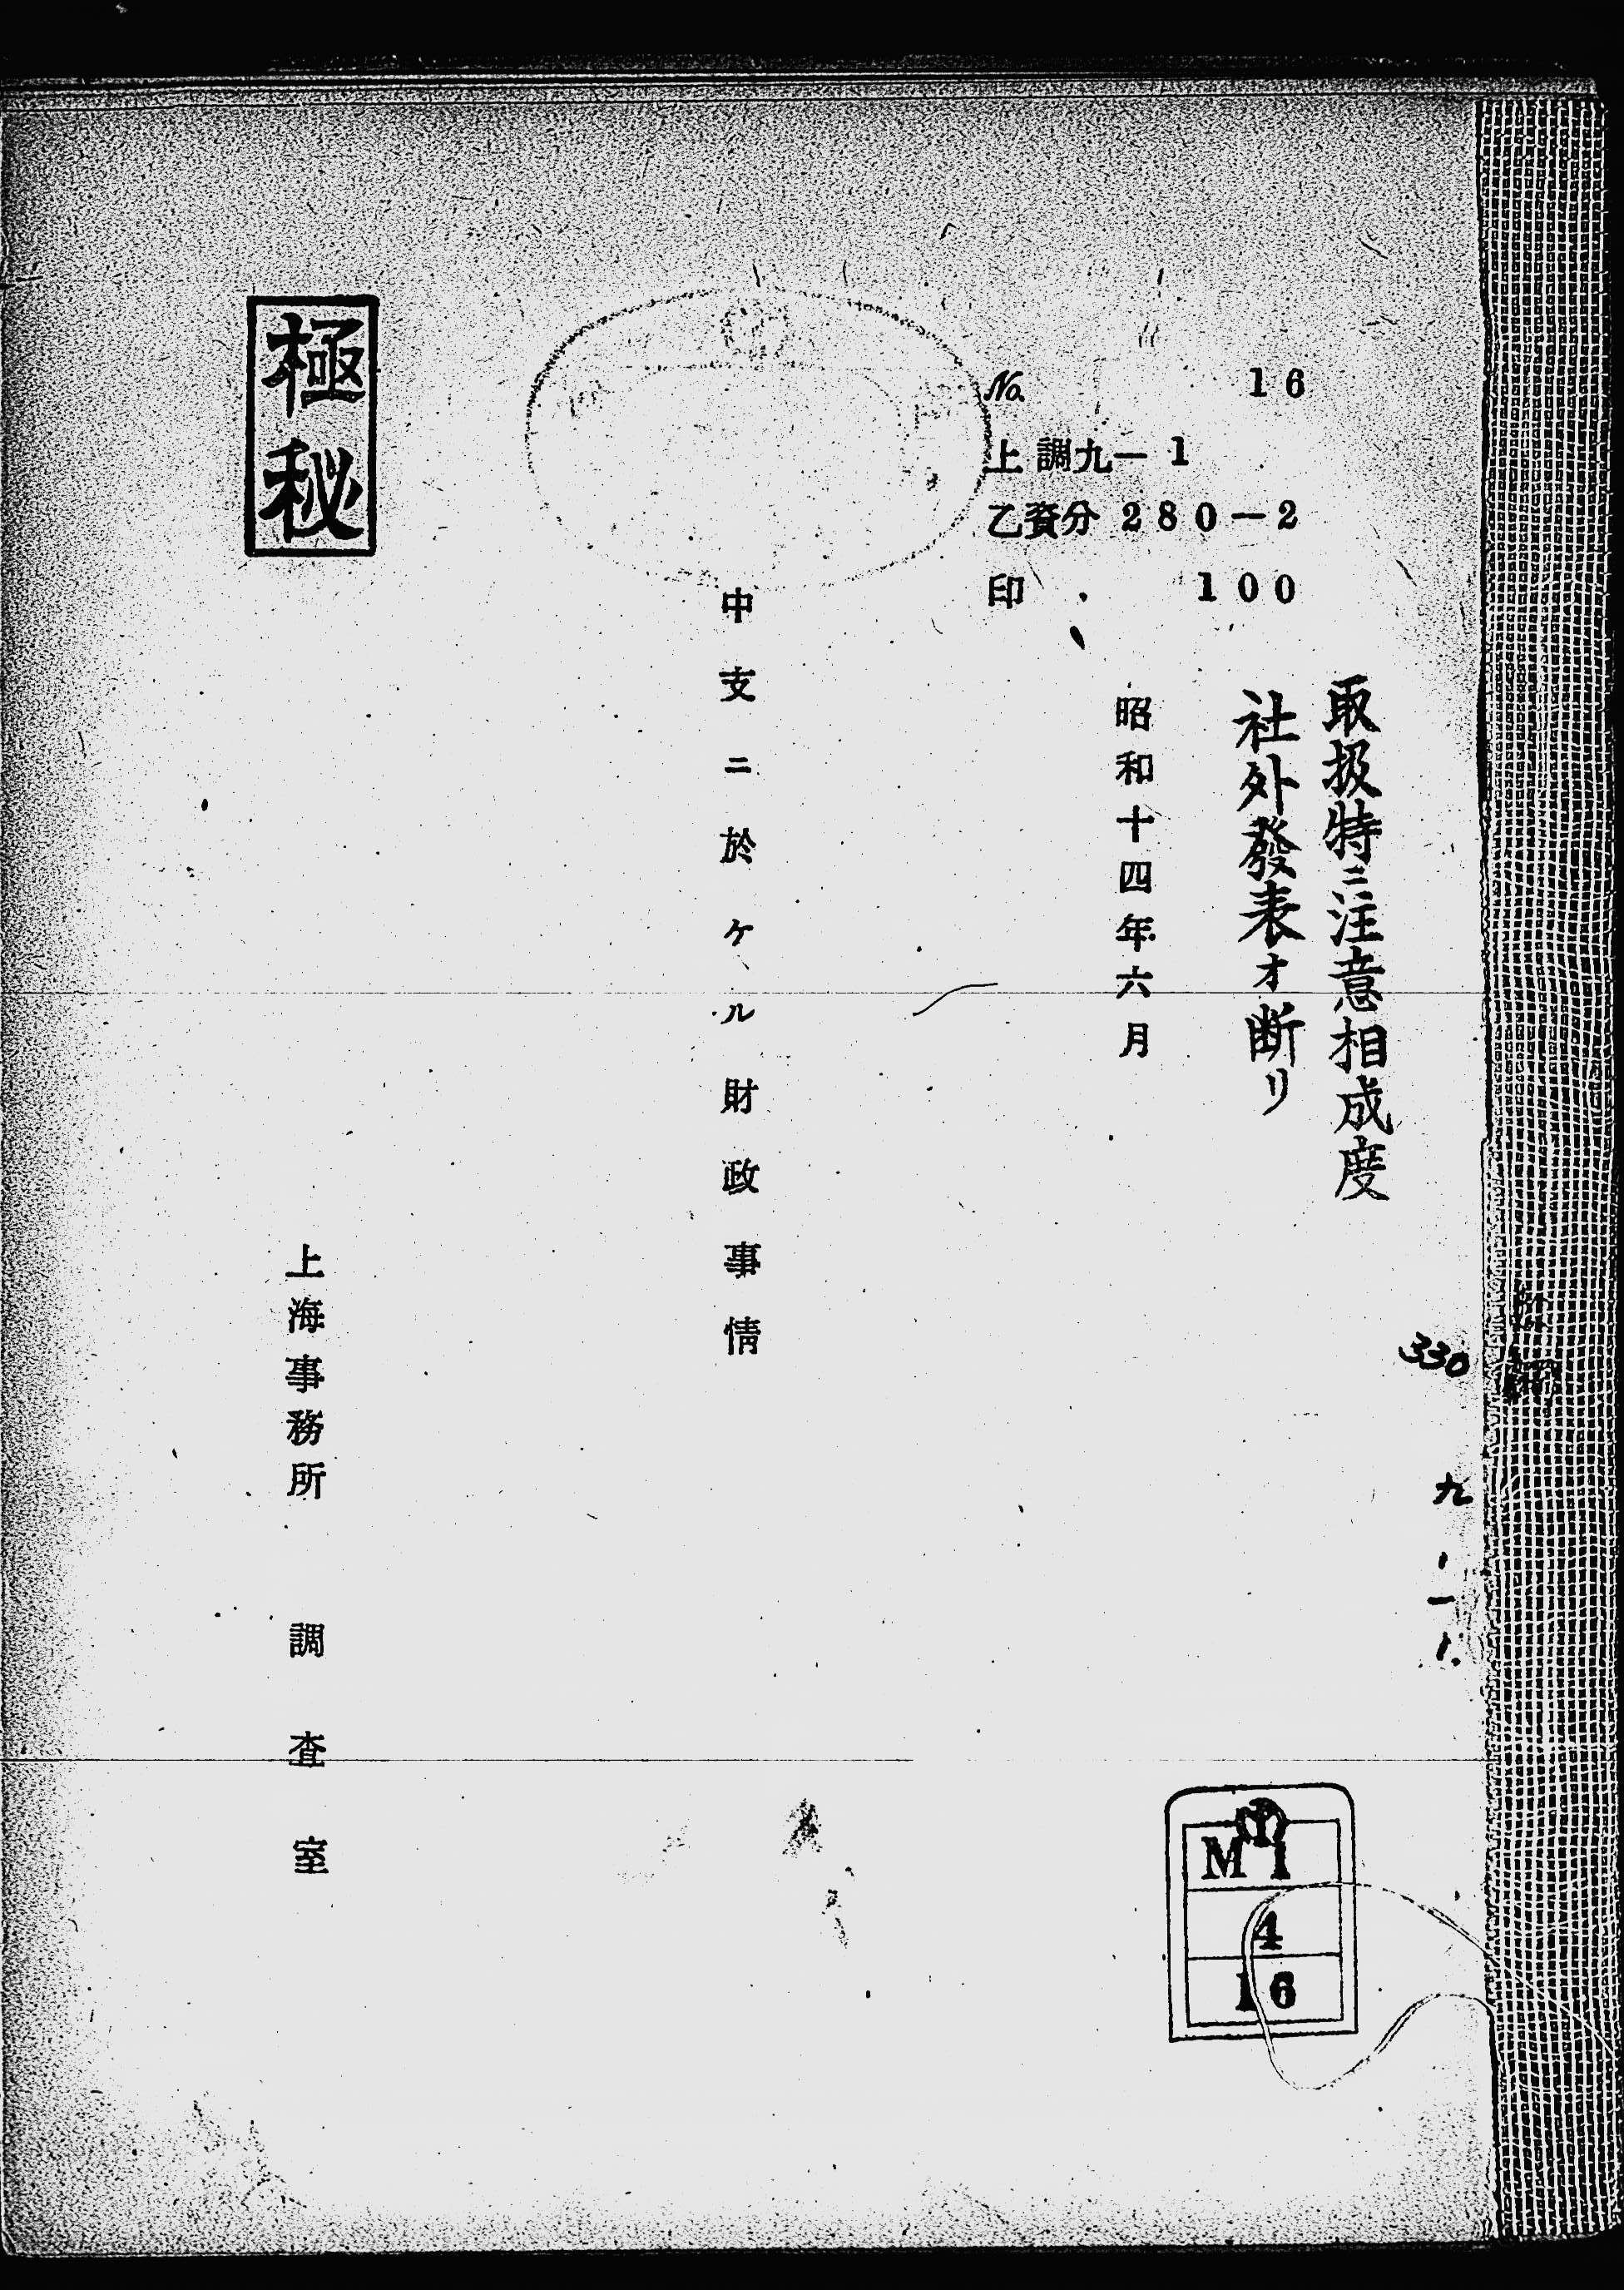 No. 16
上調九―1
乙資分 280―2
印 100
取扱特ニ注意相成度
社外發表オ断リ
昭和十四年六月
中支ニ於ケル財政事情
極秘
上海事務所 調査室
330
九
一
M 1
4
16